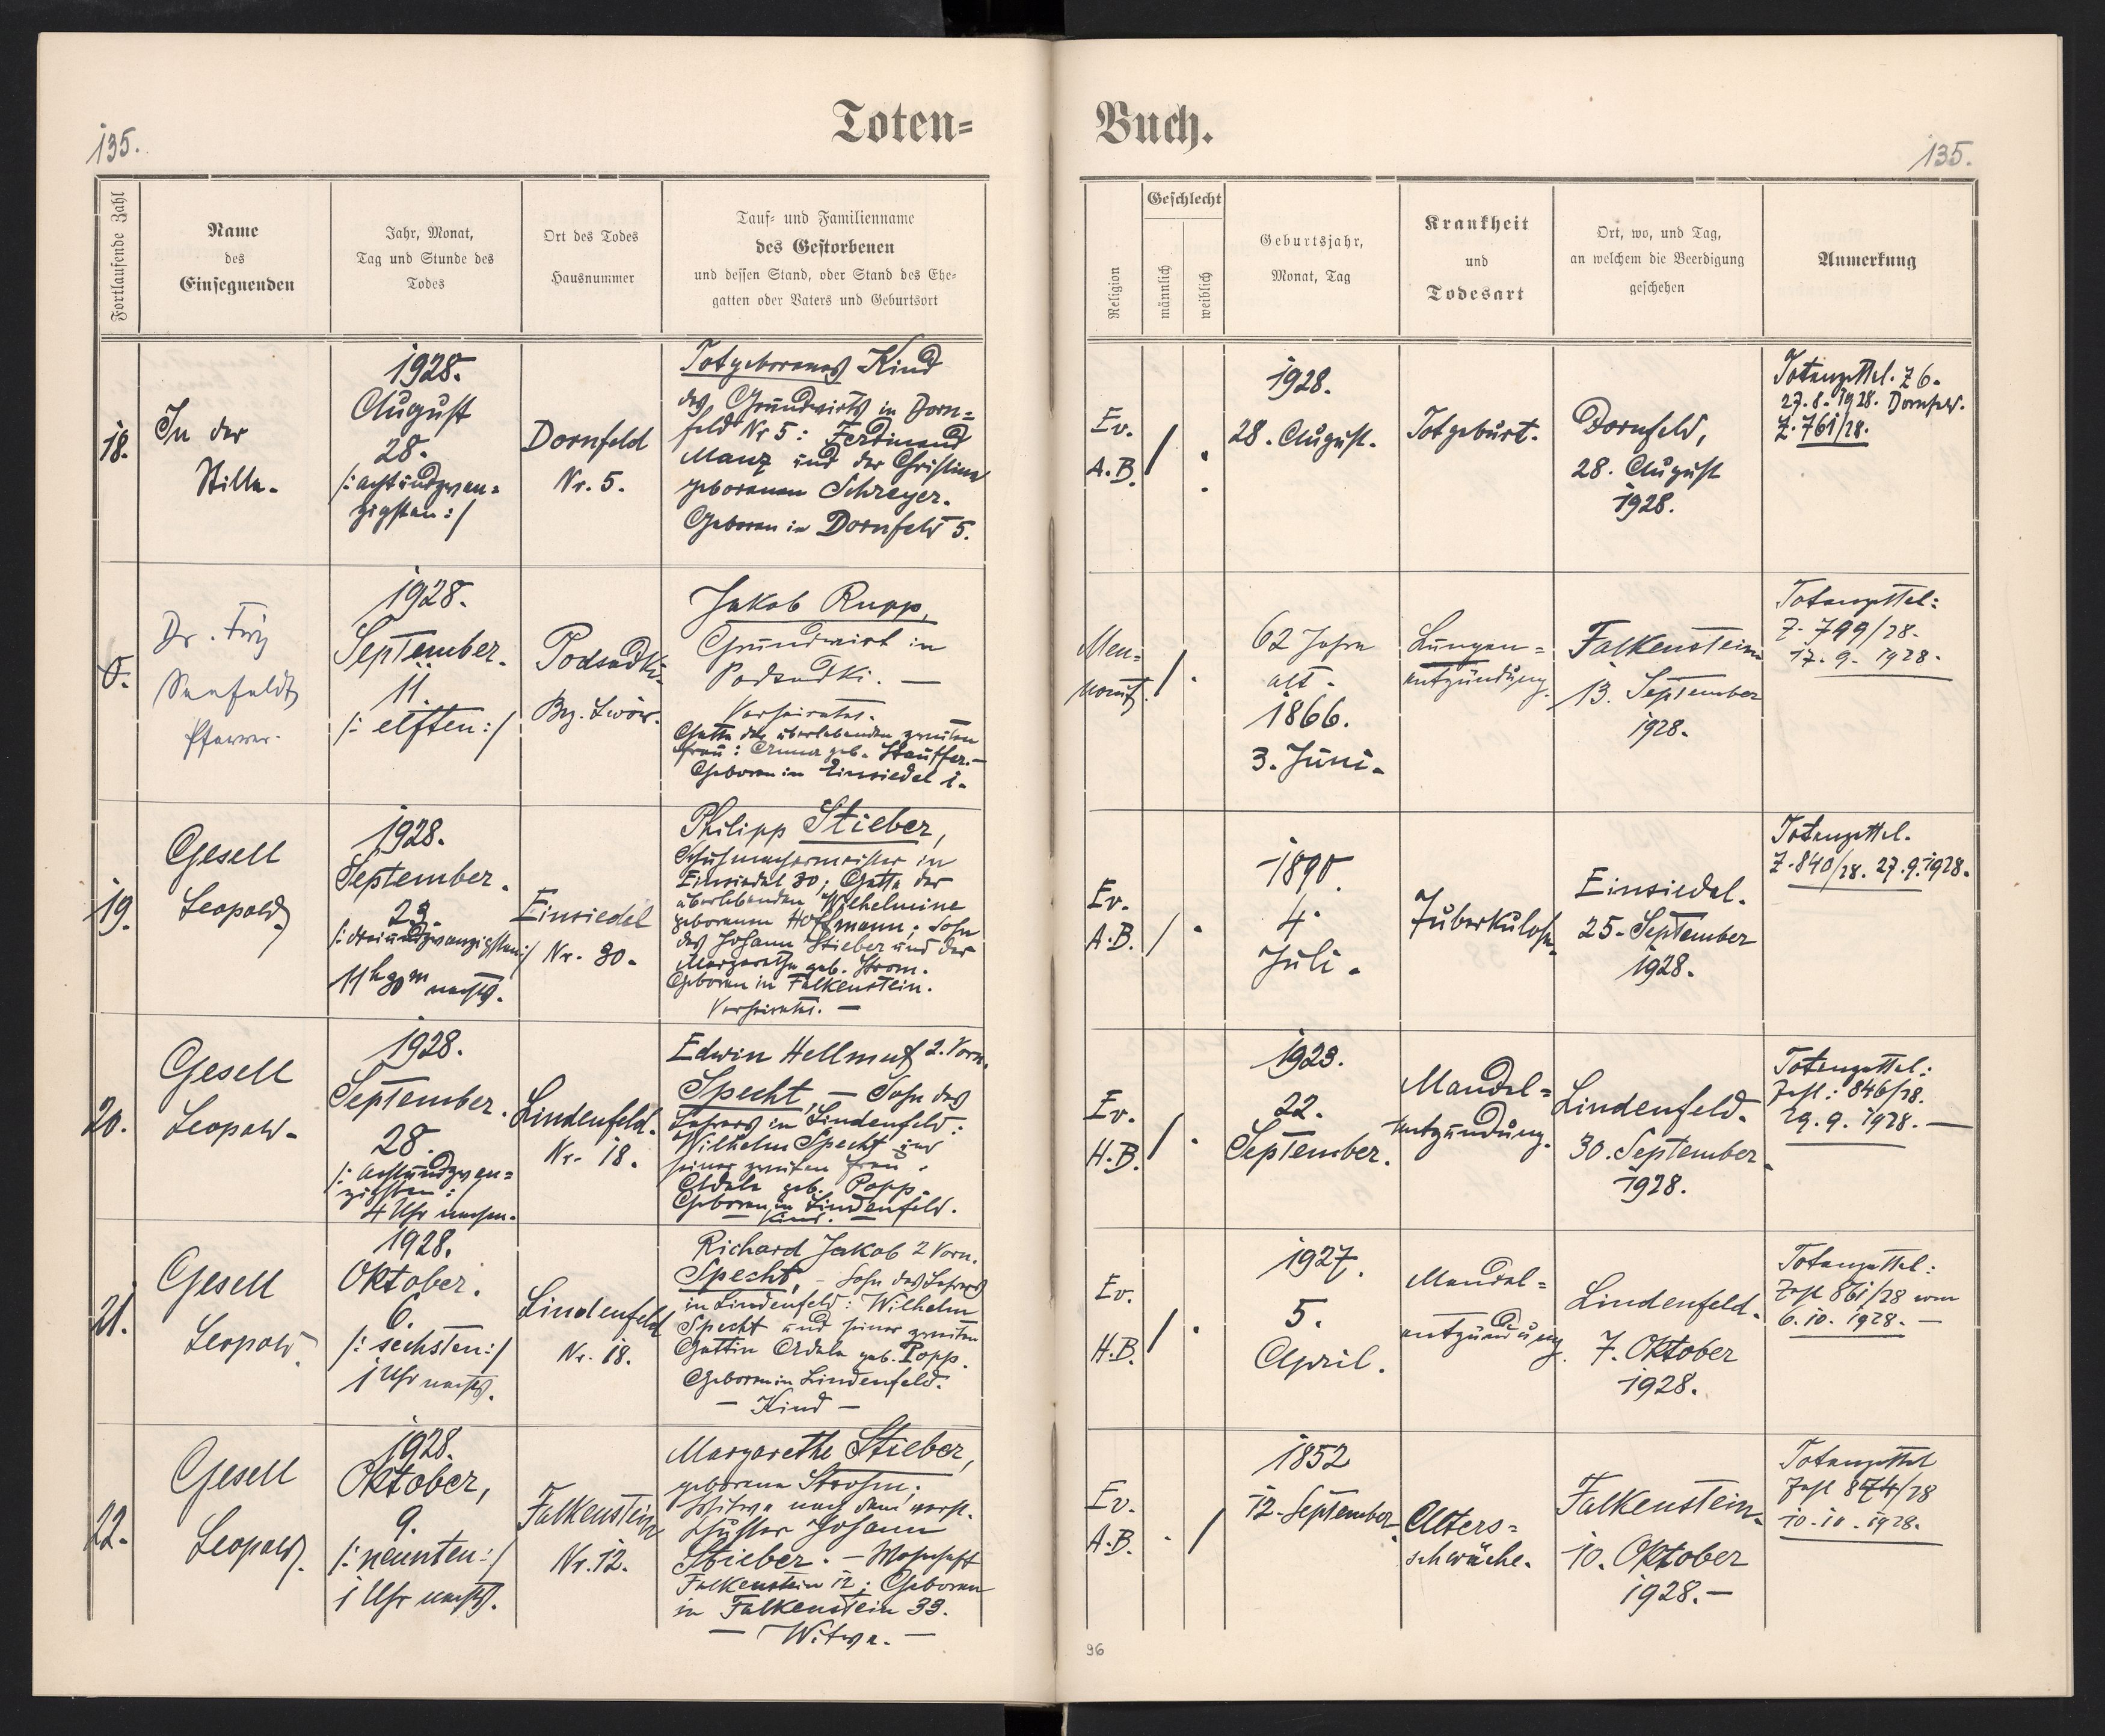 135.
Toten=
Buch.
135.
Fortlaufende Zahl
Name
des
Einsegnenden
Jahr, Monat,
Tag und Stunde des
Todes
Ort des Todes
Hausnummer
Tauf- und Familienname
des Gestorbenen
und dessen Stand, oder Stand des Ehe-
gatten oder Vaters und Geburtsort
Religion
Geschlecht
männlich
weiblich
Geburtsjahr,
Monat, Tag
Krankheit
und
Todesart
Ort, wo, und Tag,
an welchem die Beerdigung
geschehen
Anmerkung
18.
In der
Stille.
1928.
August
28.
/: achtundzwan=
zigsten :/
Dornfeld
Nr. 5.
Totgeborenes Kind
des Grundwirts in Dorn=
feld Nr 5: Ferdinand
Manz und der Christine
geborenen Schreyer.
Geboren in Dornfeld 5.
Ev.
A.B.
1928.
28. August.
Totgeburt.
Dornfeld,
28. August
1928.
Totenzettel. Z 6.
27.8.1928. Dornfeld.
Z. 761/28.
0.
Dr. Fritz
Seefeldt
Pfarrer.
1928.
September.
11.
/: elften :/
Podsadki.
Bez. Lwów.
Jakob Rupp,
Grundwirt in
Podsadki. —
Verheiratet.
Gatte der überlebenden zweiten
Frau: Anna geb. Stauffer. —
Geboren in Einsiedel 1.
Men=
nonit.
62 Jahre
alt.
1866.
3. Juni.
Lungen=
entzündung.
Falkenstein
13. September
1928.
Totenzettel:
Z. 799/28.
17. 9. 1928.
19.
Gesell
Leopold
1928.
September.
23.
/: dreiundzwanzigsten :/
11h 30m nachts.
Einsiedel
Nr. 30.
Philipp Stieber,
Schuhmachermeister in
Einsiedel 30; Gatte der
überlebenden Wilhelmine
geborenen Hoffmann; Sohn
des Johann Stieber und der
Margarethe geb. Strom.
Geboren in Falkenstein.
Verheiratet. —
Ev.
A.B.
1890.
4.
Juli.
Tuberkulose.
Einsiedel.
25. September
1928.
Totenzettel.
Z. 840/28. 27.9.1928.
20.
Gesell
Leopold.
1928.
September.
28.
/: achtundzwan=
zigsten :/
4 Uhr nachm.
Lindenfeld.
Nr. 18.
Edwin Hellmut 2. Vorn.
Specht, — Sohn des
Lehrers in Lindenfeld:
Wilhelm Specht und
seiner zweiten Frau
Adele geb. Popp.
Geboren in Lindenfeld.
— Kind. —
Ev.
H.B.
1923.
22.
September.
Mandel=
entzündung.
Lindenfeld.
30. September
1928.
Totenzettel:
Zahl: 846/28.
29.9.1928. —
21.
Gesell
Leopold
1928.
Oktober.
6.
/: sechsten :/
1 Uhr nachts.
Lindenfeld
Nr. 18.
Richard Jakob 2 Vorn.
Specht, — Sohn des Lehrers
in Lindenfeld: Wilhelm
Specht und seiner zweiten
Gattin Adele geb. Popp.
Geboren in Lindenfeld.
— Kind —
Ev.
H.B.
1927.
5.
April.
Mandel=
entzündung.
Lindenfeld.
7. Oktober
1928.
Totenzettel:
Zahl 861/28 vom
6.10.1928. —
22.
Gesell
Leopold.
1928.
Oktober,
9.
/: neunten :/
1 Uhr nachts.
Falkenstein
Nr. 12.
Margarethe Stieber,
geborene Strohm;
Witwe nach dem verst.
Schuster Johann
Stieber. — Wohnhaft
Falkenstein 12; Geboren
in Falkenstein 33.
— Witwe. —
Ev.
A.B.
1852
12. September.
Alters=
schwäche.
Falkenstein.
10. Oktober
1928. —
Totenzettel
Zahl 874/28
10.10.1928.
96